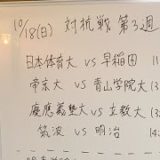 10/18(日) 対抗戦 第3週
日本体育大 VS 早稲田 (11:
帝京大 VS 青山学院大 (13
慶應義塾大 VS 立教大 (13:
筑波 VS 明治 (14: